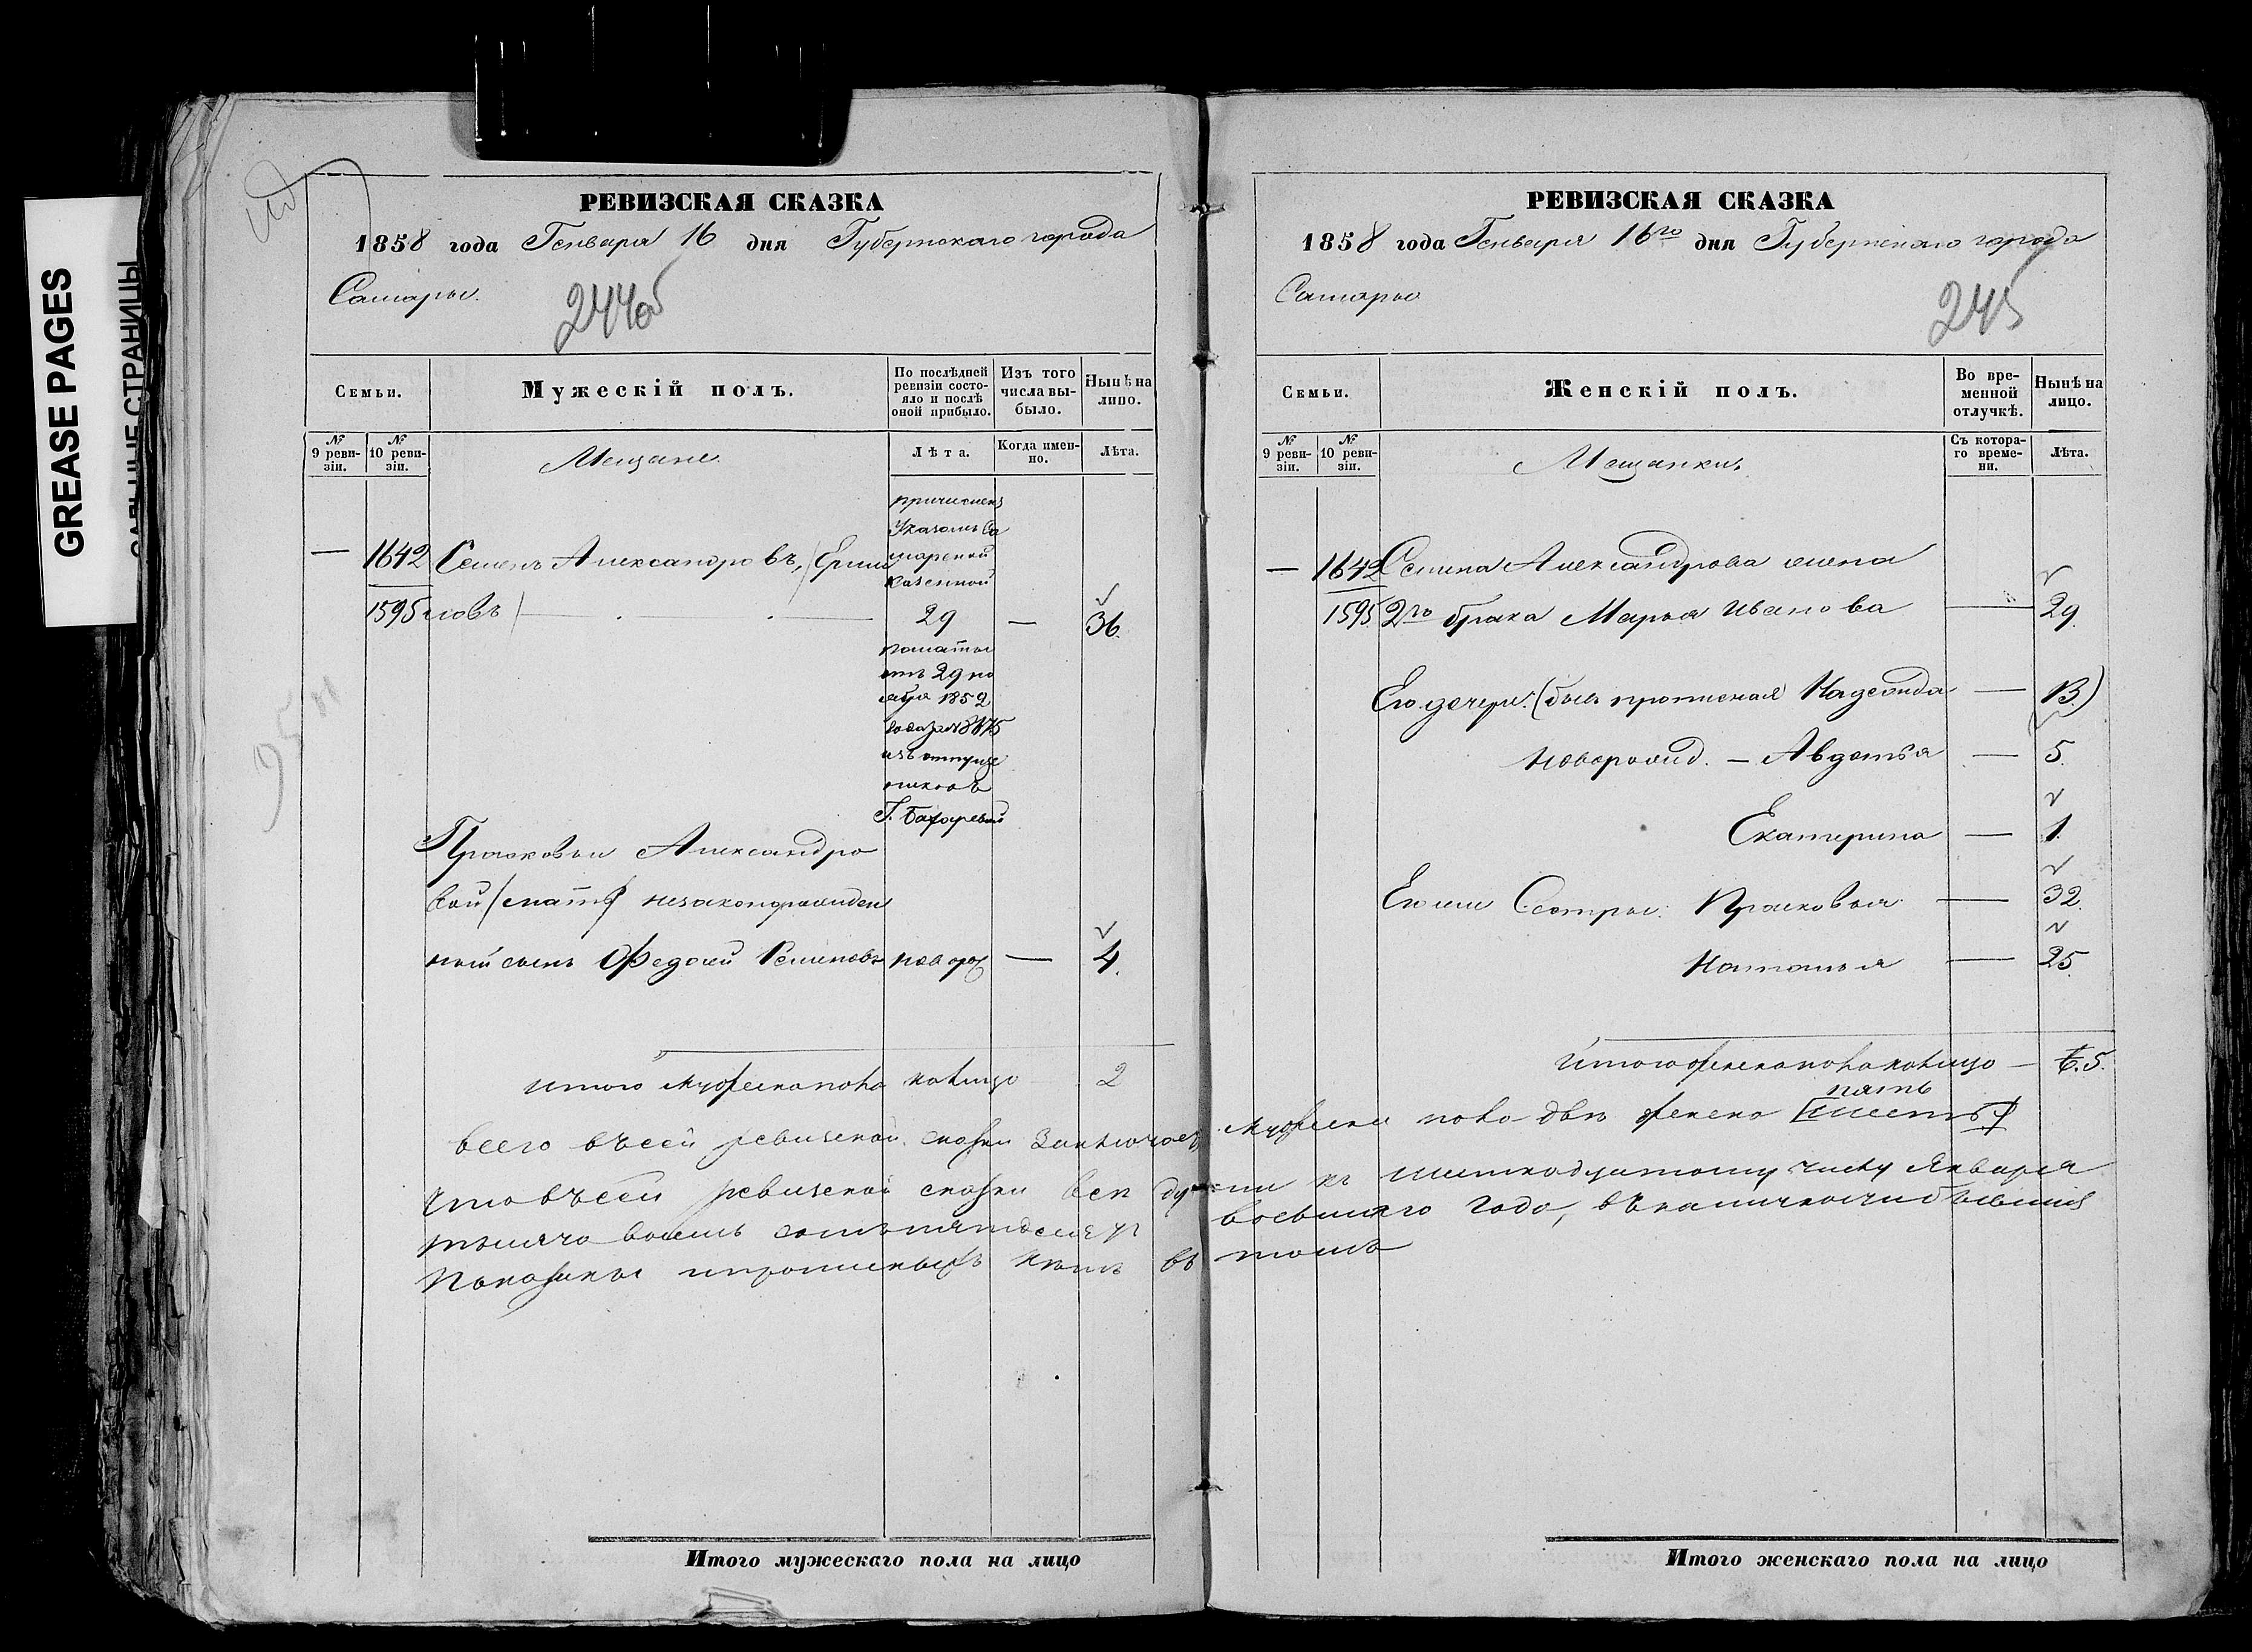 GREASE PAGES
САЛЬНЫЕ СТРАНИЦЫ
РЕВИЗСКАЯ СКАЗКА
1858 года Генваря 16 дня Губернскаго города
Самары.
244об
Семьи.
Мужескій полъ.
По послѣдней ревизіи состояло и послѣ оной прибыло.
Изъ того числа выбыло.
Нынѣ на лицо.
№ 9 ревизіи.
№ 10 ревизіи.
Мещане.
Лѣта.
Когда именно.
Лѣта.
причислен
Указомъ Са
марской
казенной
— 1642 Семенъ Александровъ, (Ерми
1595 ловъ) — 29 — 36.
палаты
отъ 29 но
ября 1852
года за №
изъ отпуще
никовъ
Г.
Прасковьи Александро
вой (мать) незаконорожден
ный сынъ Федосей Семеновъ новорож — 4.
Итого мужеска пола на лицо 2
Всего въ сей ревизской скаски заключает
что въ сей ревизской скаски все ду
тысяча восемь сотъ пятдесятъ
показаны и прописныхъ нѣтъ въ
РЕВИЗСКАЯ СКАЗКА
1858 года Генваря 16го дня Губернскаго города
Самары
245
Семьи.
Женскій полъ.
Во временной отлучкѣ.
Нынѣ на лицо.
№ 9 ревизіи.
№ 10 ревизіи.
Мещанки.
Съ котораго времени.
Лѣта.
— 1642 Семена Александрова жена
1595 2го брака Марья Иванова — 29.
Его дочери: (быв прописная) Надежда — 13.)
новорожд. — Авдотья — 5.
Екатерина — 1.
Ево же Сестры: Прасковья — 32.
Наталья — 25.
Итого женска пола на лицо — 6. 5.
пять
мужска пола двѣ женска [шесть]
ши къ шестнадцатому числу Января
восьмаго года, въ наличности бывшія
томъ
Итого мужескаго пола на лицо
Итого женскаго пола на лицо